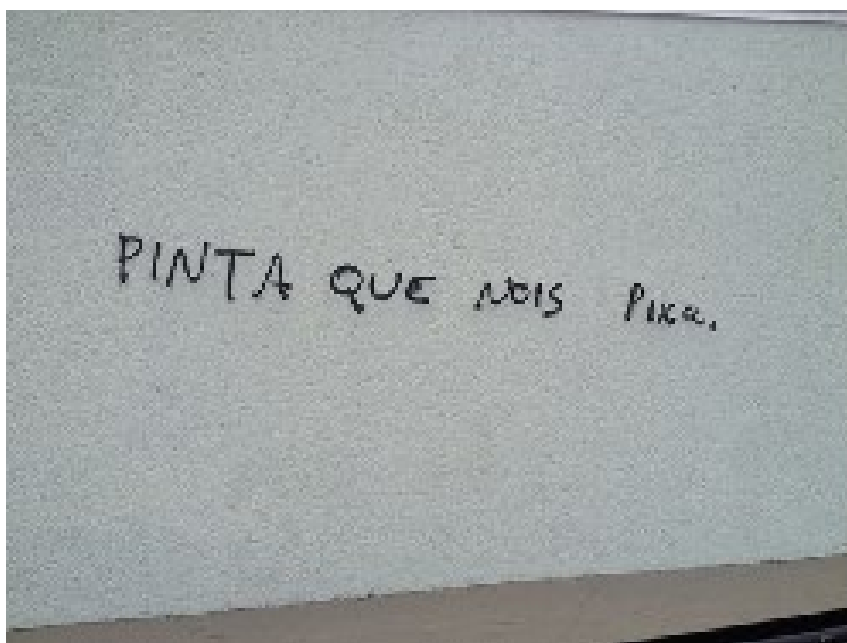 PINTA QUE NOIS Pixa.